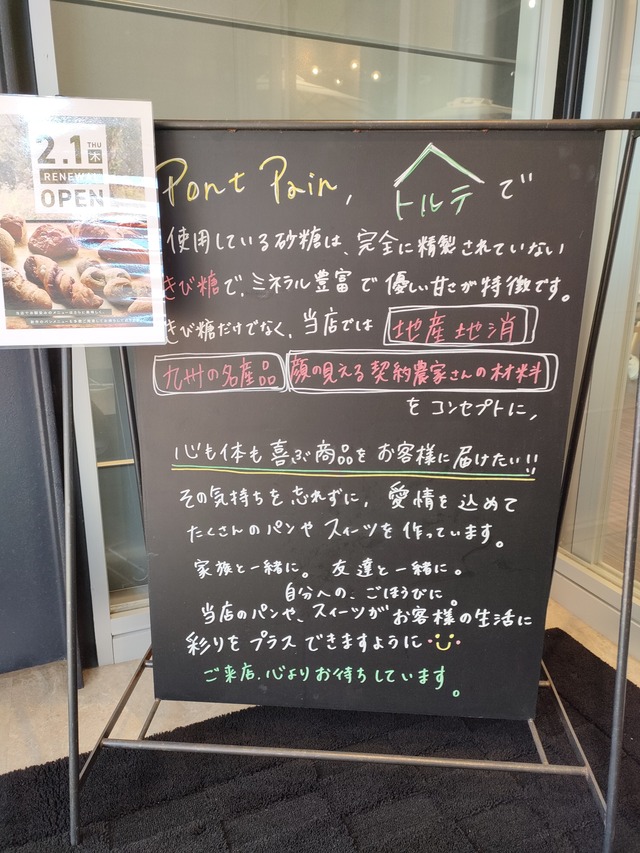 2.1 THU 木
RENEWAL
OPEN
Pont Pain, トルテ で
使用している砂糖は、完全に精製されていない
きび糖で、ミネラル豊富で優しい甘さが特徴です。
きび糖だけでなく、当店では 地産地消
九州の名産品 顔の見える契約農家さんの材料
をコンセプトに,
心も体も喜ぶ商品をお客様に届けたい!!
その気持ちを忘れずに, 愛情を込めて
たくさんのパンやスイーツを作っています。
家族と一緒に。 友達と一緒に。
自分への、ごほうびに。
当店のパンや、スイーツがお客様の生活に
彩りをプラスできますように
ご来店、心よりお待ちしています。